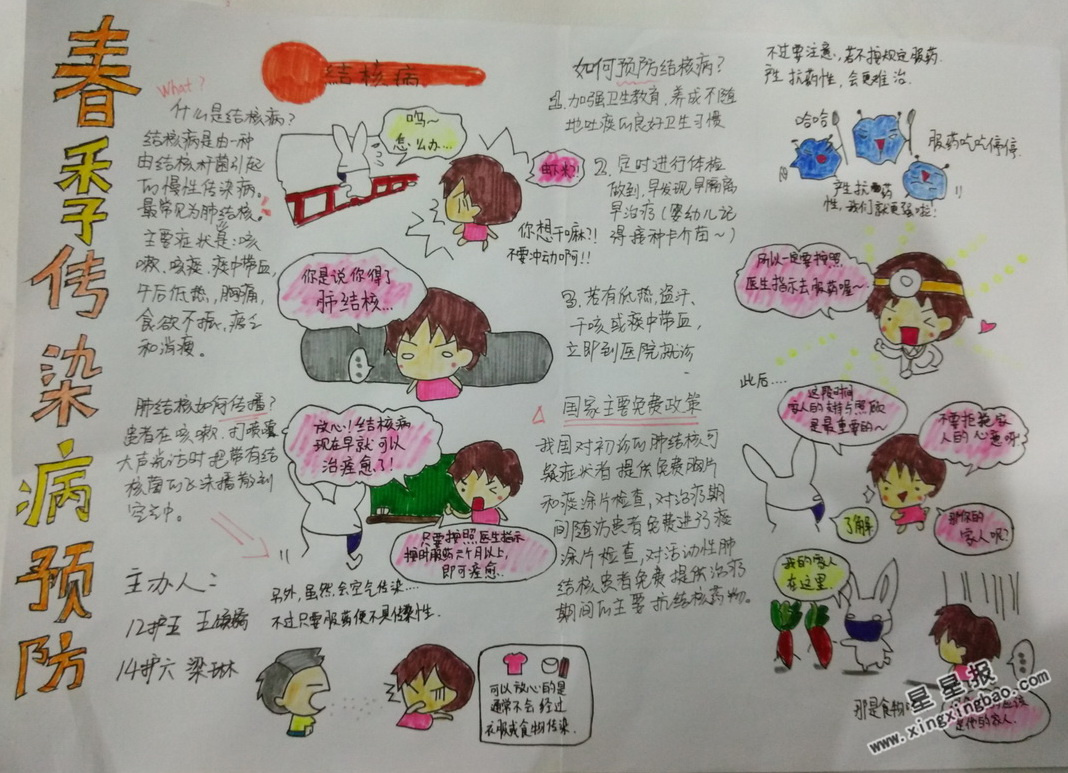 春季传染病预防
结核病
What?
什么是结核病?
结核病是由一种
由结核杆菌引起
的慢性传染病。
最常见为肺结核。
主要症状是:咳
嗽、咳痰、痰中带血,
午后低热,胸痛,
食欲不振、疲乏
和消瘦。
肺结核如何传播?
患者在咳嗽、打喷嚏
大声说话时把带有结
核菌的飞沫播散到
空气中。
主办人:
12护五
14护六 梁琳
呜~
怎么办...
你想干嘛?!
不要冲动啊!!
你是说你得了
肺结核...
放心!结核病
现在早就可以
治痊愈了!
只要按照医生指示
按时服药六个月以上,
即可痊愈..
另外,虽然会空气传染...
不过只要服药便不具传染性.
可以放心的是
通常不会经过
衣服或食物传染.
如何预防结核病?
1.加强卫生教育,养成不随
地吐痰的良好卫生习惯
2.定时进行体检
做到,早发现,早隔离
早治疗(婴幼儿记
得接种卡介苗~)
3.若有低热,盗汗、
干咳或痰中带血,
立即到医院就诊
国家主要免费政策
我国对初诊的肺结核可
疑症状者提供免费胸片
和痰涂片检查,对治疗期
间随访患者免费进行痰
涂片检查,对活动性肺
结核患者免费提供治疗
期间的主要抗结核药物。
不过要注意,若不按规定服药
产生抗药性,会更难治.
哈哈
服药吃吃停停.
产生抗药
性,我们就更强啦!
所以一定要按照
医生指示去服药喔~
此后....
这段时间
家人的支持与照顾
是最重要的~
不要拒绝家
人的心意呀
了解
那你的
家人呢?
我的家人
在这里
那是食物
星星报
www.xingxingbao.com